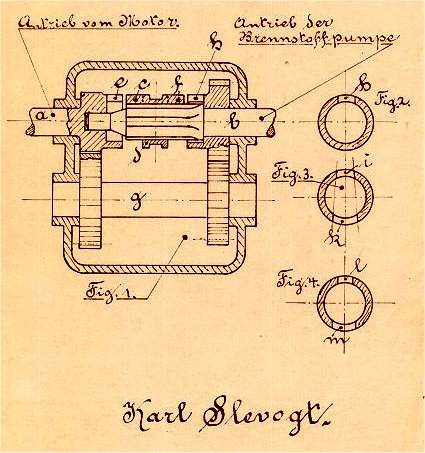 Antrieb vom Motor.
Antrieb der
Brennstoffpumpe
e c f h
a
b
d
g
Fig. 1.
h
Fig. 2.
i
Fig. 3.
k
l
Fig. 4.
m
Karl Slevogt.